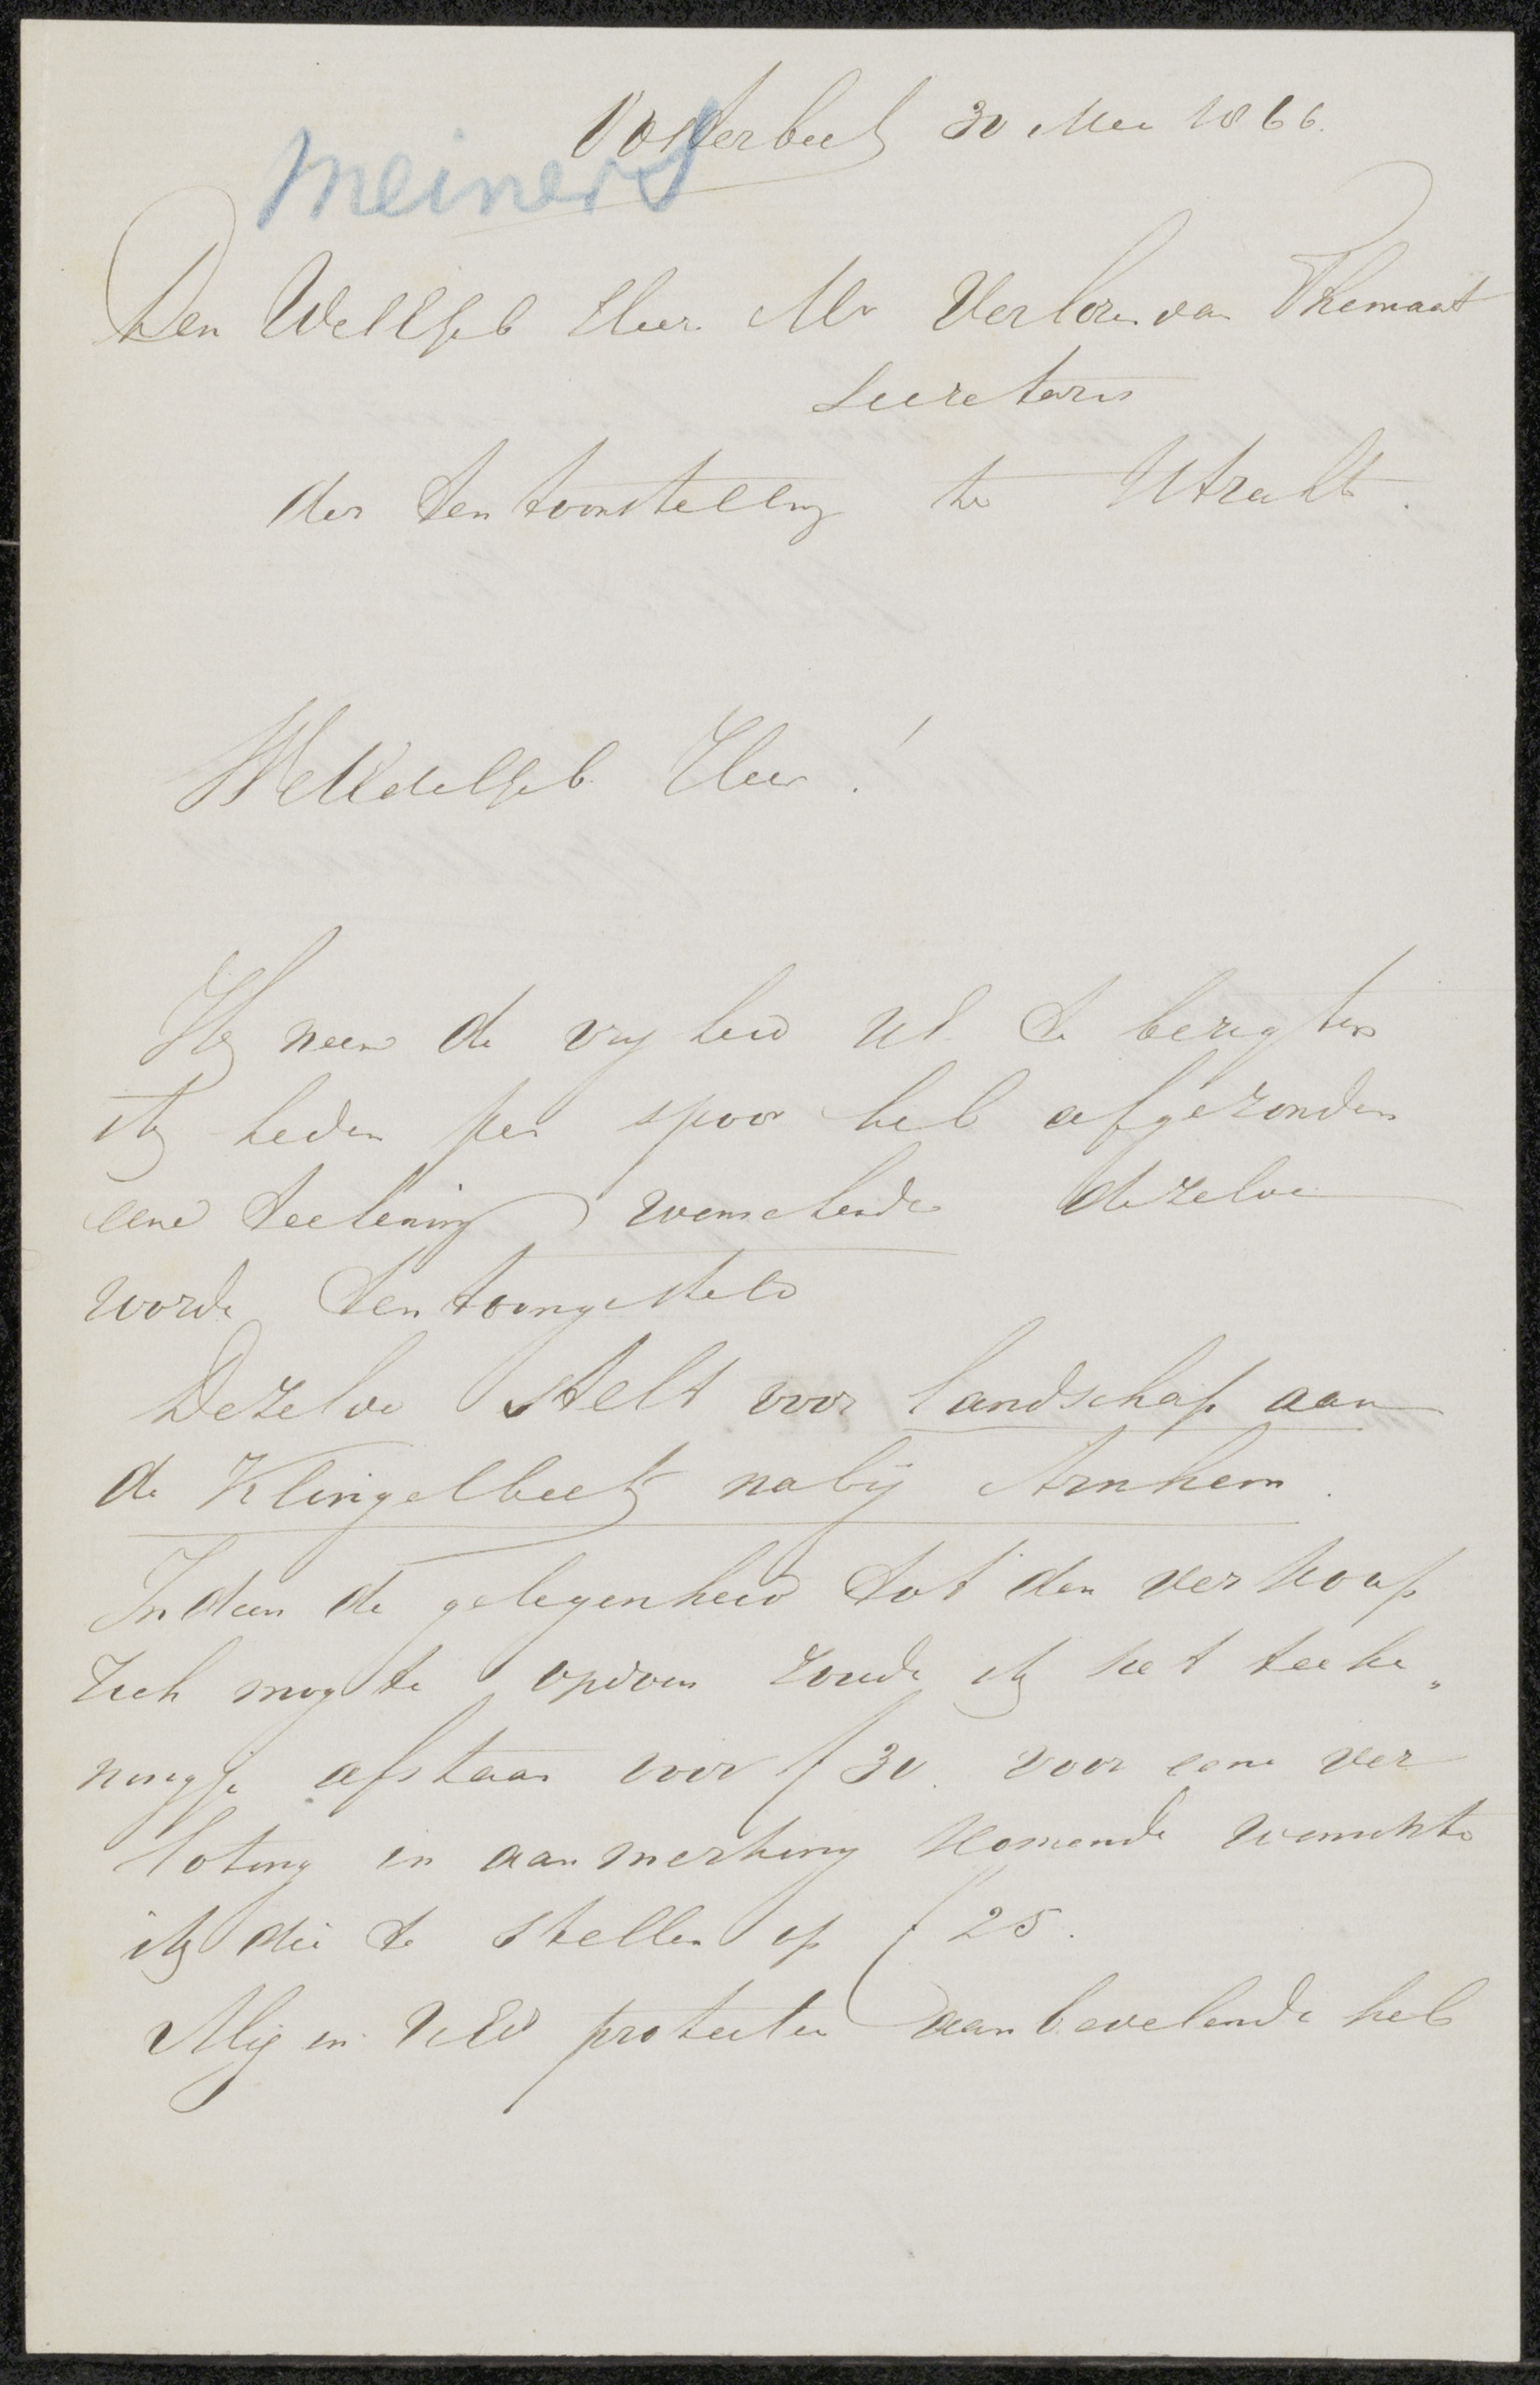 Oosterbeek 30 Mei 1866.
Meiners
Den WelEgeb Heer Mr Verloren van Themaat
Secretaris
der tentoonstelling te Utrecht.
WelEdelgeb Heer!
Ik neem de vryheid UE te berigten
ik heden per spoor heb afgezonden
eene teekening wenschende dezelve
worde tentoongesteld
Dezelve stelt voor landschap aan
de Klingelbeek nabij Arnhem.
Indien de gelegenheid tot den verkoop
zich mogte opdoen zoude ik het teeke„
ningje afstaan voor f 30. voor eene ver
loting in aanmerking komende wenschte
ik die te stellen op f 25.
Mij in UEd protectie aanbevelende heb